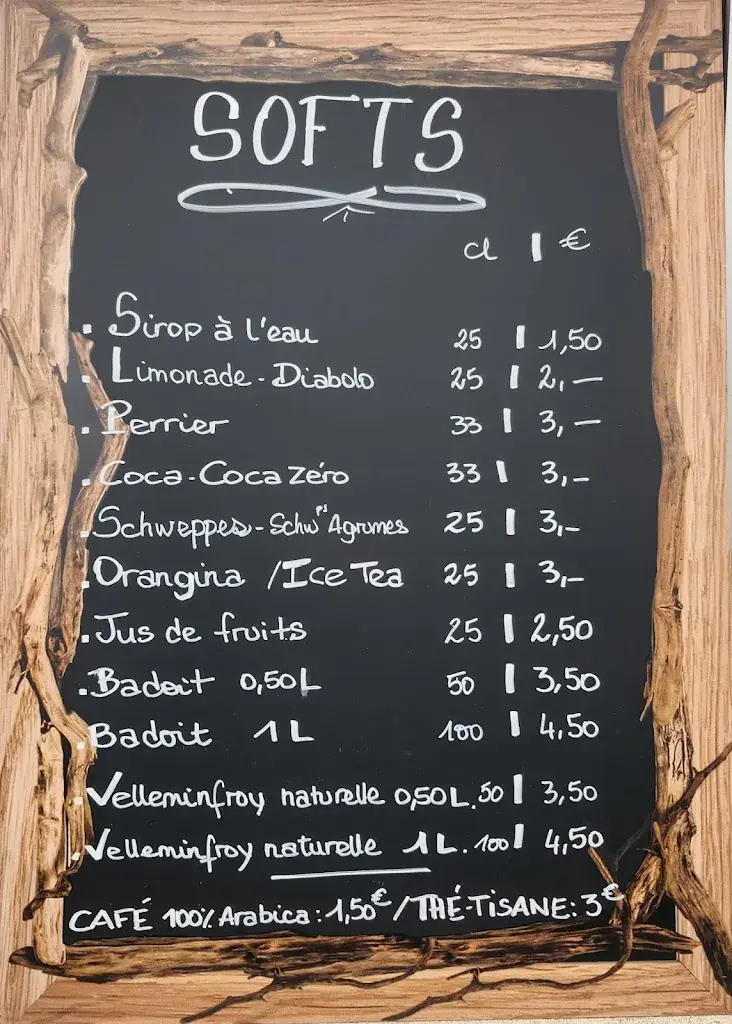 SOFTS
cl | €
. Sirop à l'eau 25 | 1,50
. Limonade - Diabolo 25 | 2,—
. Perrier 33 | 3,—
. Coca - Coca Zéro 33 | 3,—
. Schweppes - Schw^ps Agrumes 25 | 3,—
. Orangina / Ice Tea 25 | 3,—
. Jus de fruits 25 | 2,50
. Badoit 0,50L 50 | 3,50
. Badoit 1L 100 | 4,50
. Velleminfroy naturelle 0,50L. 50 | 3,50
. Velleminfroy naturelle 1L. 100 | 4,50
CAFÉ 100% Arabica : 1,50€ / THÉ-TISANE : 3€